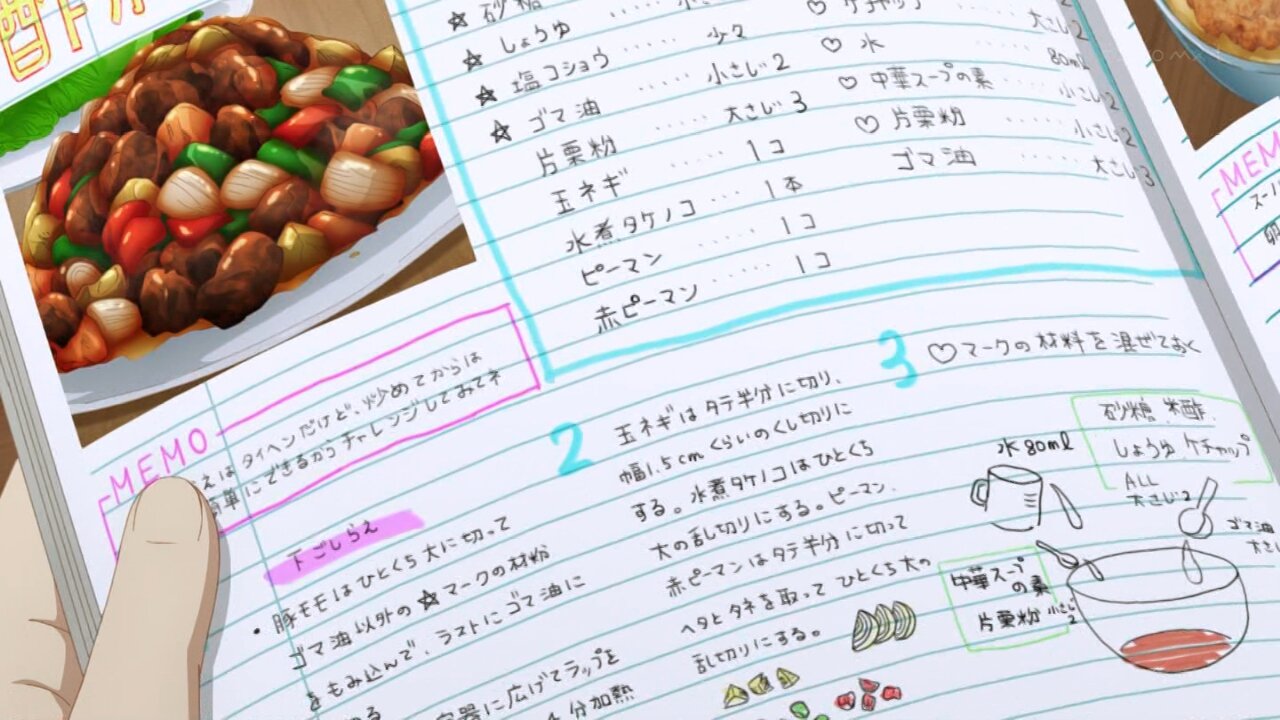 酢
☆ 砂糖
☆ しょうゆ
☆ 塩コショウ ‥‥‥ 少々
☆ ゴマ油 ‥‥‥ 小さじ2
片栗粉 ‥‥‥ 大さじ3
玉ネギ ‥‥‥ 1コ
水煮タケノコ ‥‥ 1本
ピーマン ‥‥‥ 1コ
赤ピーマン ‥‥‥ 1コ
♡ ケチャップ
♡ 水 80ml
♡ 中華スープの素 小さじ2
♡ 片栗粉 ‥‥‥ 小さじ2
ゴマ油 ‥‥‥ 大さじ3
MEMO
えはタイヘンだけど、炒めてからは
簡単にできるからチャレンジしてみてネ
下ごしらえ
・豚モモはひとくち大に切って
ゴマ油以外の☆マークの材粉
をもみ込んで、ラストにゴマ油に
容器に広げてラップを
分加熱
2
玉ネギはタテ半分に切り、
幅1.5cmくらいのくし切りに
する。水煮タケノコはひとくち
大の乱切りにする。ピーマン、
赤ピーマンはタテ半分に切って
ヘタとタネを取ってひとくち大の
乱切りにする。
3
♡マークの材料を混ぜておく
水80ml
砂糖 米酢
しょうゆ ケチャップ
ALL
大さじ2
ゴマ油
中華スープ
の素
片栗粉 小さじ
2
MEMO
スーパ